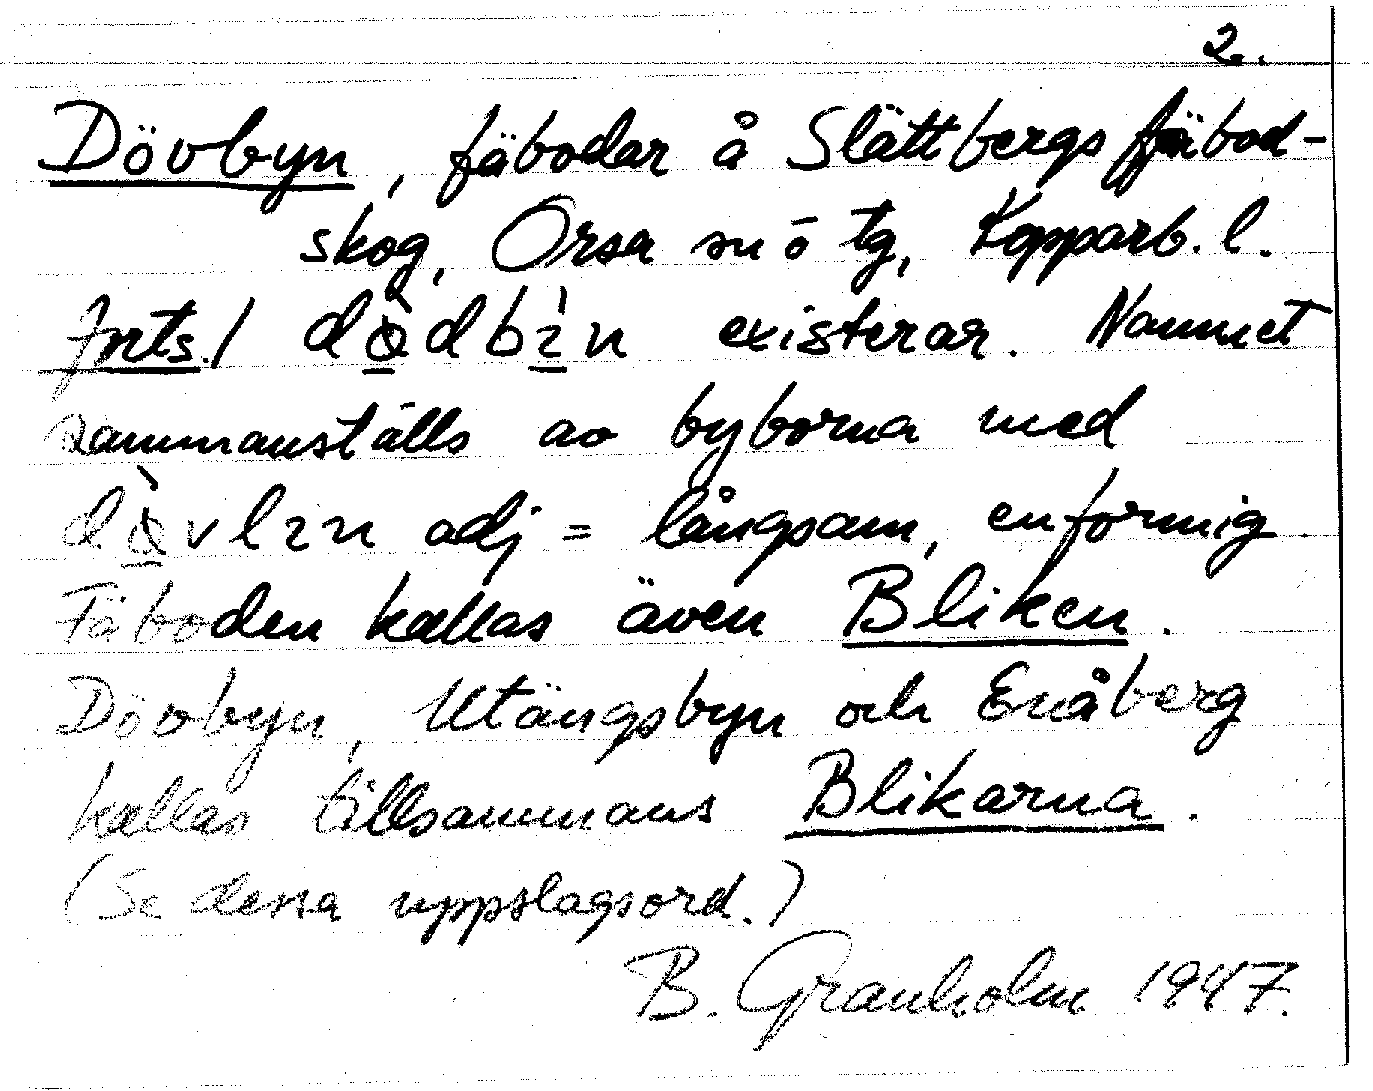 2.
Dövbyn, fäbodar å Slättbergs fäbod-
skog, Orsa sn ö tg, Kopparb. l.
Forts./ existerar. Namnet
sammanställs av byborna med
adj = långsam, enformig.
Fäboden kallas även Bliken.
Dövbyn, Utängsbyn och Enåberg
kallas tillsammans Blikarna.
(Se dessa uppslagsord.)
B. Granholm 1947.